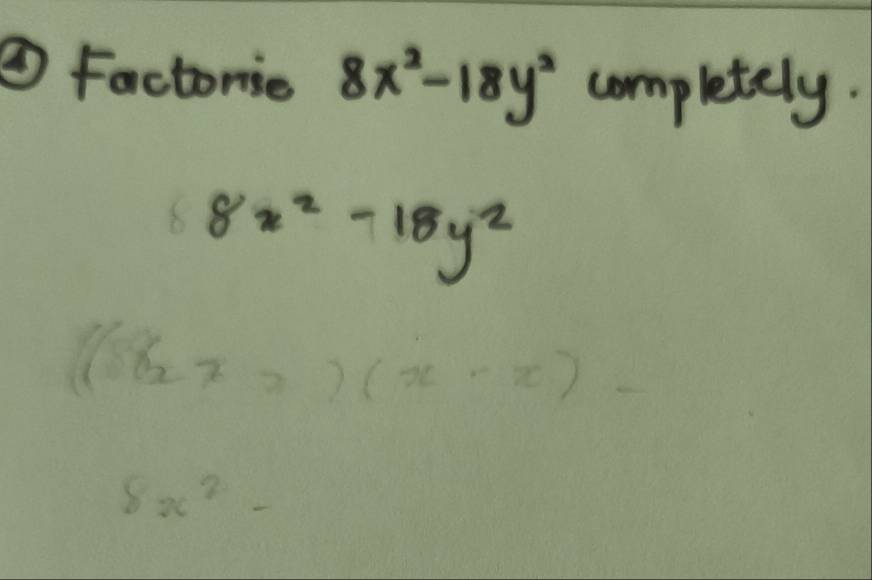 ④ Factorise 8x² - 18y² completely.
8x² - 18y²
8x² -